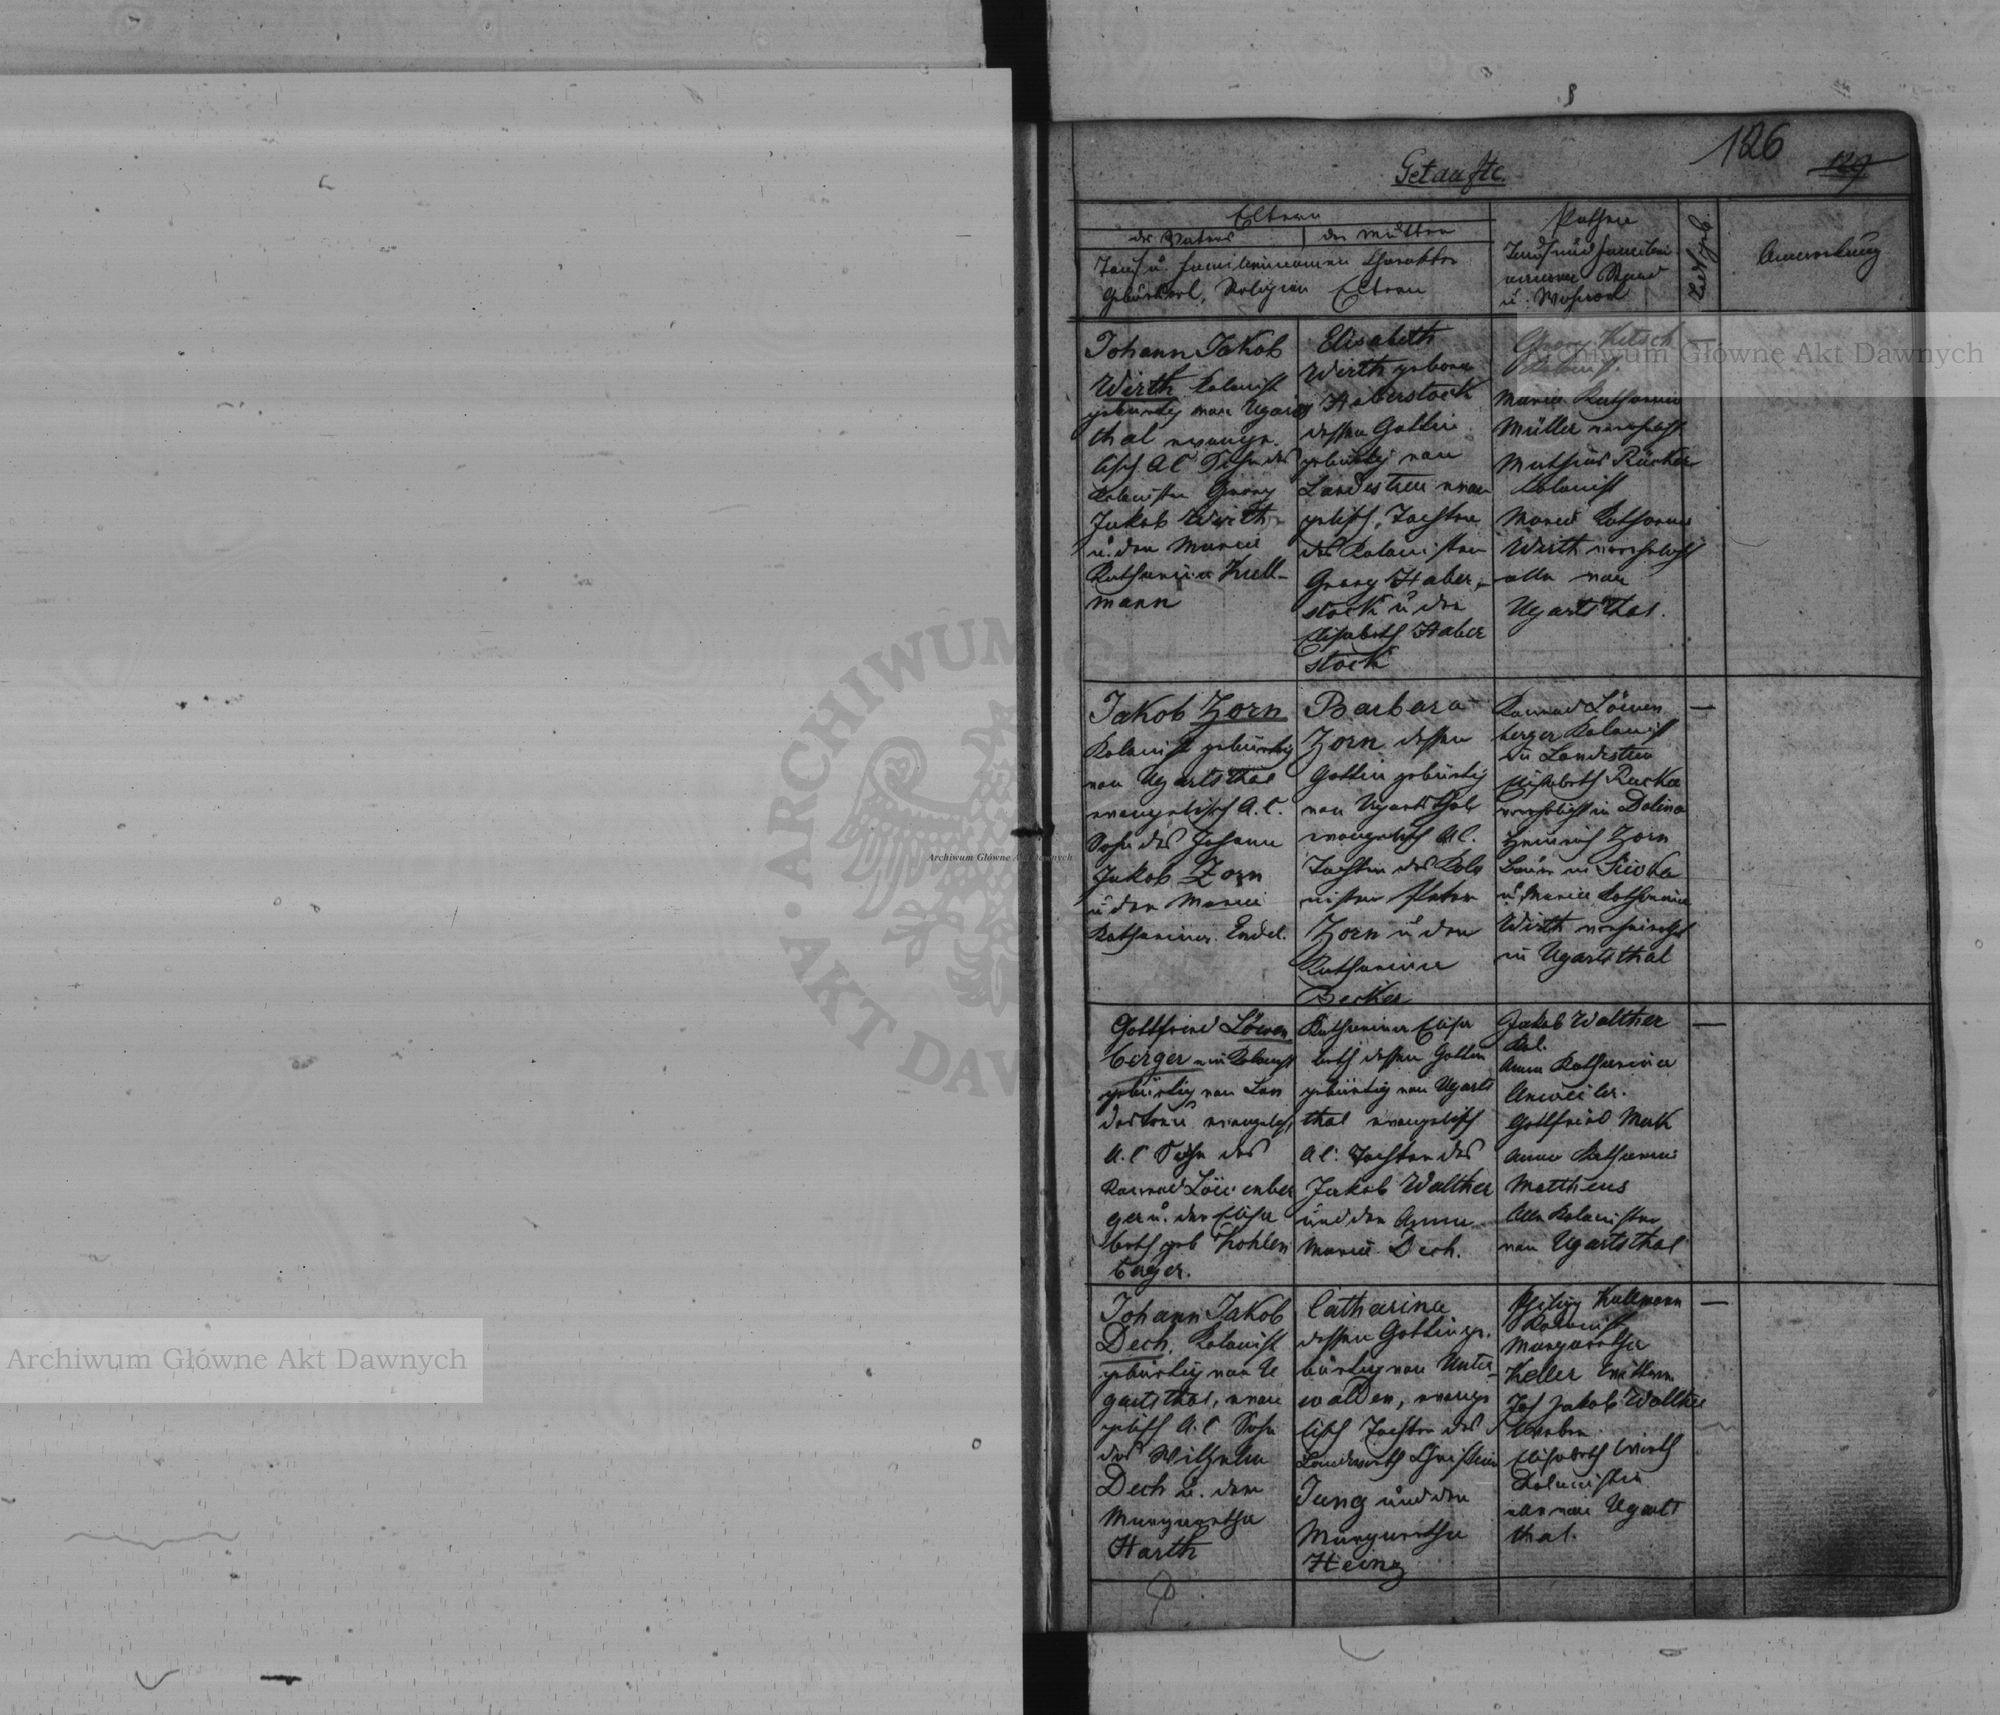 186
129
Getaufte.
Eltern
des Vaters
der Mutter
Tauf u. Familiennamen Charakter
Geburtsort, Religion Eltern
Pathen
Tauf und Familien
namen Stand
u. Wohnort
Anmerkung
Johann Jakob
Wirth Kolonist
gebürtig von Ugarts
thal evange-
lisch A C Sohn des
Kolonisten Georg
Jakob Wirth
u. der Maria
Katharina Kull-
mann
Elisabeth
Wirth geborne
Haberstock
dessen Gattin
gebürtig von
Landestreu evan
gelisch, Tochter
des Kolonisten
Georg Haber-
stock u der
Elisabeth Haber
stock
Georg Ketsch
Kolonist.
Maria Katharina
Müller verehelicht
Mathias Rücker
Kolonist
Maria Katharina
Wirth verehelicht
alle von
Ugartsthal.
Jakob Zorn
Kolonist gebürtig
von Ugartsthal
evangelisch A. C.
Sohn des Johann
Jakob Zorn
u der Maria
Katharina Endel.
Barbara
Zorn dessen
Gattin gebürtig
von Ugartsthal
evangelisch A C.
Tochter des Kolo
nisten Peter
Zorn u der
Katharina
Becker
Konrad Löwen
berger Kolonist
in Landestreu
Elisabeth Rucker
verehelicht in Dolina
Heinrich Zorn
Bauer in Siwka
u. Maria Katharina
Wirth verheirathet
in Ugartsthal
Gottfried Löwen
berger ein Kolonist
gebürtig von Lan
destreu evangelisch
A. C Sohn des
Konrad Löwenber
ger u. der Elisa
beth geb Kohlen
berger.
Katharina Elisa
beth dessen Gattin
gebürtig von Ugarts
thal evangelisch
A C. Tochter des
Jakob Walther
und der Anna
Maria Dech.
Jakob Walther
Kol.
Anna Katharina
Anweiler.
Gottfried Mak
Anna Katharina
Mattheus
Alle Kolonisten
von Ugartsthal
Johann Jakob
Dech, Kolonist
gebürtig von U
gartsthal, evan
gelisch A. C Sohn
des Wilhelm
Dech u. der
Margaretha
Harth
Catharina
dessen Gattin ge.
bürtig von Unter-
walden, evange
lisch Tochter des
Landwirth Christian
Jung und der
Margaretha
Heinz
Philipp Kullmann
Kolonist
Margaretha
Keller Wittwe
Joh Jakob Walther
Weber
Elisabeth Wirth
Kolonistin
alle von Ugarts
thal.
Archiwum Główne Akt Dawnych
Archiwum Główne Akt Dawnych
Archiwum Główne Akt Dawnych
ARCHIWUM G
AKT DAW